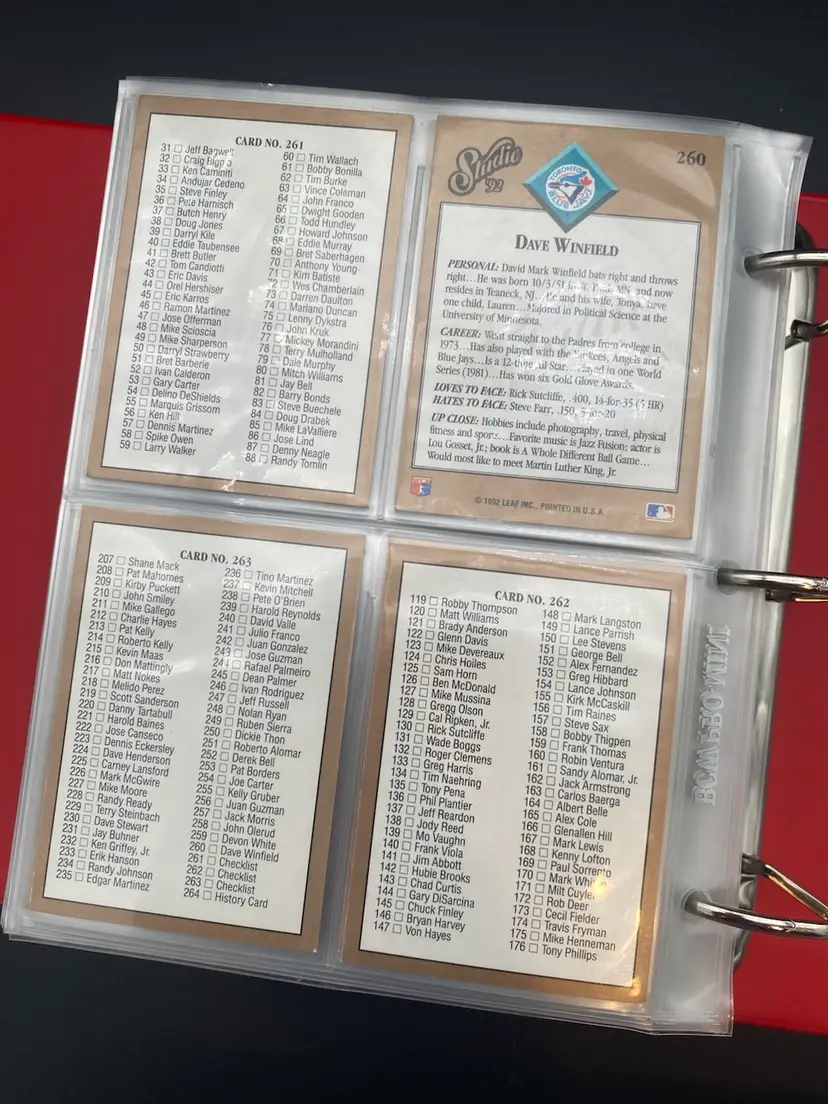 CARD NO. 261
31 Jeff Bagwell
32 Craig Biggio
33 Ken Caminiti
34 Andujar Cedeno
35 Steve Finley
36 Pete Harnisch
37 Butch Henry
38 Doug Jones
39 Darryl Kile
40 Eddie Taubensee
41 Brett Butler
42 Tom Candiotti
43 Eric Davis
44 Orel Hershiser
45 Eric Karros
46 Ramon Martinez
47 Jose Offerman
48 Mike Scioscia
49 Mike Sharperson
50 Darryl Strawberry
51 Bret Barberie
52 Ivan Calderon
53 Gary Carter
54 Delino DeShields
55 Marquis Grissom
56 Ken Hill
57 Dennis Martinez
58 Spike Owen
59 Larry Walker
60 Tim Wallach
61 Bobby Bonilla
62 Tim Burke
63 Vince Coleman
64 John Franco
65 Dwight Gooden
66 Todd Hundley
67 Howard Johnson
68 Eddie Murray
69 Bret Saberhagen
70 Anthony Young
71 Kim Batiste
72 Wes Chamberlain
73 Darren Daulton
74 Mariano Duncan
75 Lenny Dykstra
76 John Kruk
77 Mickey Morandini
78 Terry Mulholland
79 Dale Murphy
80 Mitch Williams
81 Jay Bell
82 Barry Bonds
83 Steve Buechele
84 Doug Drabek
85 Mike LaValliere
86 Jose Lind
87 Denny Neagle
88 Randy Tomlin
Studio '92
TORONTO
BLUE JAYS
260
DAVE WINFIELD
PERSONAL: David Mark Winfield bats right and throws
right...He was born 10/3/51 in St. Paul, MN, and now
resides in Teaneck, NJ...He and his wife, Tonya, have
one child, Lauren...Majored in Political Science at the
University of Minnesota.
CAREER: Went straight to the Padres from college in
1973...Has also played with the Yankees, Angels and
Blue Jays...Is a 12-time All Star...Played in one World
Series (1981)...Has won six Gold Glove Awards.
LOVES TO FACE: Rick Sutcliffe, .400, 14-for-35 (5 HR)
HATES TO FACE: Steve Farr, .150, 3-for-20
UP CLOSE: Hobbies include photography, travel, physical
fitness and sports...Favorite music is Jazz Fusion; actor is
Lou Gosset, Jr.; book is A Whole Different Ball Game...
Would most like to meet Martin Luther King, Jr.
© 1992 LEAF INC., PRINTED IN U.S.A.
CARD NO. 263
207 Shane Mack
208 Pat Mahomes
209 Kirby Puckett
210 John Smiley
211 Mike Gallego
212 Charlie Hayes
213 Pat Kelly
214 Roberto Kelly
215 Kevin Maas
216 Don Mattingly
217 Matt Nokes
218 Melido Perez
219 Scott Sanderson
220 Danny Tartabull
221 Harold Baines
222 Jose Canseco
223 Dennis Eckersley
224 Dave Henderson
225 Carney Lansford
226 Mark McGwire
227 Mike Moore
228 Randy Ready
229 Terry Steinbach
230 Dave Stewart
231 Jay Buhner
232 Ken Griffey, Jr.
233 Erik Hanson
234 Randy Johnson
235 Edgar Martinez
236 Tino Martinez
237 Kevin Mitchell
238 Pete O'Brien
239 Harold Reynolds
240 David Valle
241 Julio Franco
242 Juan Gonzalez
243 Jose Guzman
244 Rafael Palmeiro
245 Dean Palmer
246 Ivan Rodriguez
247 Jeff Russell
248 Nolan Ryan
249 Ruben Sierra
250 Dickie Thon
251 Roberto Alomar
252 Derek Bell
253 Pat Borders
254 Joe Carter
255 Kelly Gruber
256 Juan Guzman
257 Jack Morris
258 John Olerud
259 Devon White
260 Dave Winfield
261 Checklist
262 Checklist
263 Checklist
264 History Card
CARD NO. 262
119 Robby Thompson
120 Matt Williams
121 Brady Anderson
122 Glenn Davis
123 Mike Devereaux
124 Chris Hoiles
125 Sam Horn
126 Ben McDonald
127 Mike Mussina
128 Gregg Olson
129 Cal Ripken, Jr.
130 Rick Sutcliffe
131 Wade Boggs
132 Roger Clemens
133 Greg Harris
134 Tim Naehring
135 Tony Pena
136 Phil Plantier
137 Jeff Reardon
138 Jody Reed
139 Mo Vaughn
140 Frank Viola
141 Jim Abbott
142 Hubie Brooks
143 Chad Curtis
144 Gary DiSarcina
145 Chuck Finley
146 Bryan Harvey
147 Von Hayes
148 Mark Langston
149 Lance Parrish
150 Lee Stevens
151 George Bell
152 Alex Fernandez
153 Greg Hibbard
154 Lance Johnson
155 Kirk McCaskill
156 Tim Raines
157 Steve Sax
158 Bobby Thigpen
159 Frank Thomas
160 Robin Ventura
161 Sandy Alomar, Jr.
162 Jack Armstrong
163 Carlos Baerga
164 Albert Belle
165 Alex Cole
166 Glenallen Hill
167 Mark Lewis
168 Kenny Lofton
169 Paul Sorrento
170 Mark Whiten
171 Milt Cuyler
172 Rob Deer
173 Cecil Fielder
174 Travis Fryman
175 Mike Henneman
176 Tony Phillips
BCW PRO-MINT